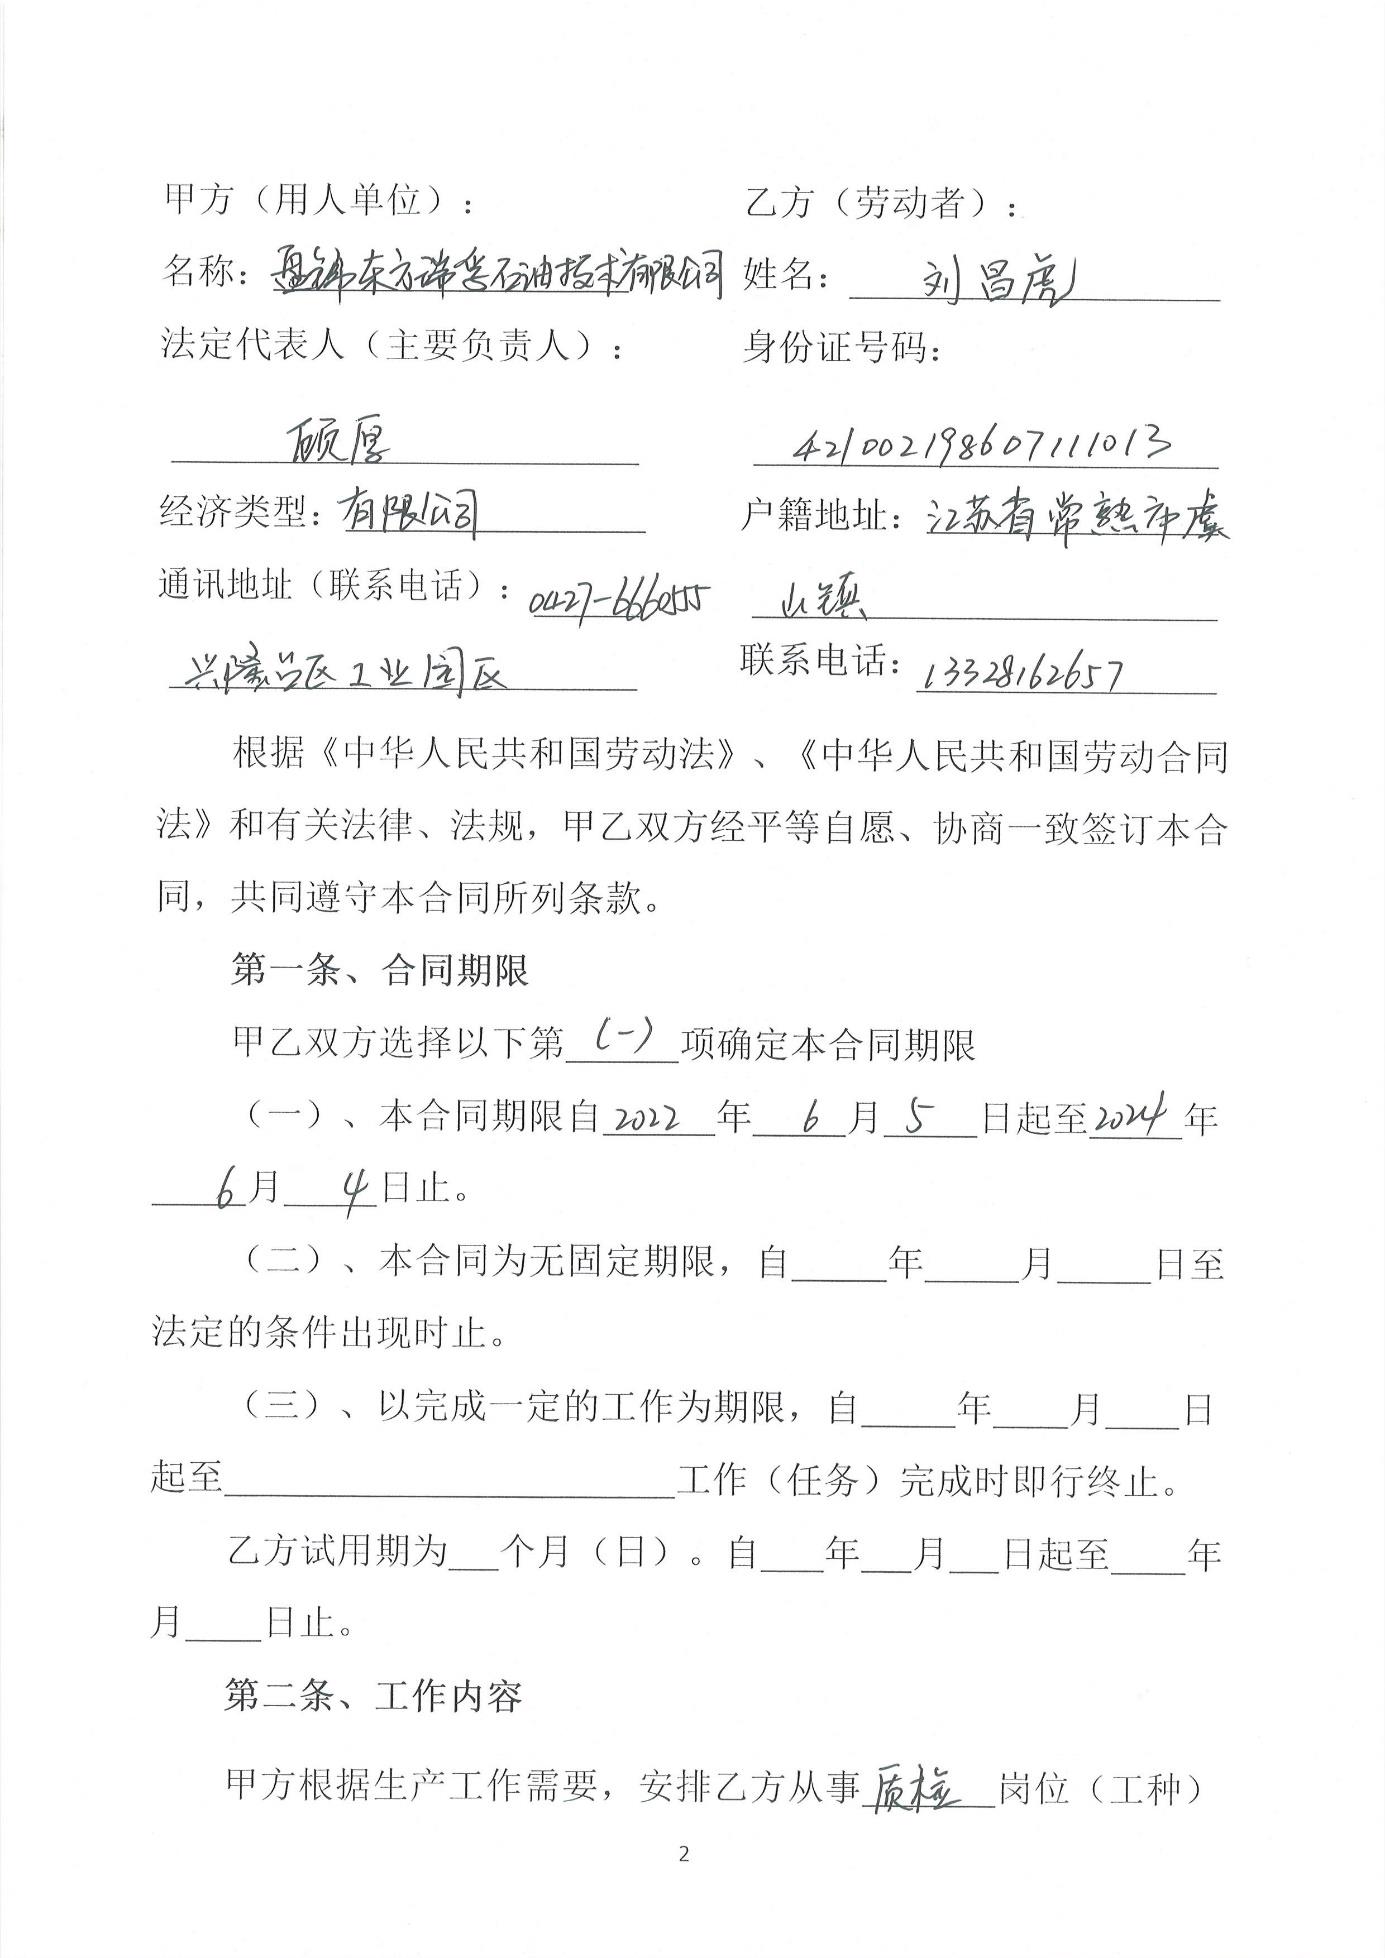 甲方（用人单位）：
名称：盘锦东方瑞孚石油技术有限公司
法定代表人（主要负责人）：
顾厚
经济类型：有限公司
通讯地址（联系电话）：0427-6660555
兴隆台区工业园区
乙方（劳动者）：
姓名：刘昌虎
身份证号码：
421002198607111013
户籍地址：江苏省常熟市虞
山镇
联系电话：13328162657
根据《中华人民共和国劳动法》、《中华人民共和国劳动合同
法》和有关法律、法规，甲乙双方经平等自愿、协商一致签订本合
同，共同遵守本合同所列条款。
第一条、合同期限
甲乙双方选择以下第（一）项确定本合同期限
（一）、本合同期限自2022年6月5日起至2024年
6月4日止。
（二）、本合同为无固定期限，自_____年_____月_____日至
法定的条件出现时止。
（三）、以完成一定的工作为期限，自_____年____月____日
起至________________________工作（任务）完成时即行终止。
乙方试用期为___个月（日）。自____年___月___日起至____年
月____日止。
第二条、工作内容
甲方根据生产工作需要，安排乙方从事质检岗位（工种）
2